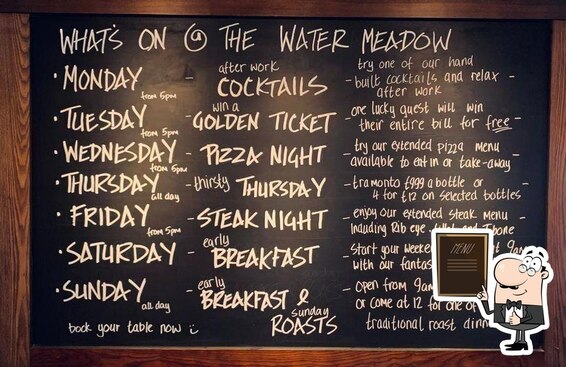 WHAT'S ON @ THE WATER MEADOW
· MONDAY from 5pm - after work COCKTAILS
try one of our hand
- built cocktails and relax -
after work
· TUESDAY from 5pm - win a GOLDEN TICKET
- one lucky guest will win
their entire bill for free -
· WEDNESDAY from 5pm - PIZZA NIGHT
- try our extended pizza menu
available to eat in or take-away -
· THURSDAY all day - thirsty THURSDAY
- tramonto £9.99 a bottle or
4 for £12 on selected bottles
· FRIDAY from 5pm - STEAK NIGHT
- enjoy our extended steak menu -
Including Rib eye, &
· SATURDAY - early BREAKFAST
- Start your
with our
· SUNDAY all day - early BREAKFAST & Sunday ROASTS
- Open from 9am
or come at 12 for one of
traditional roast
book your table now :)
MENU